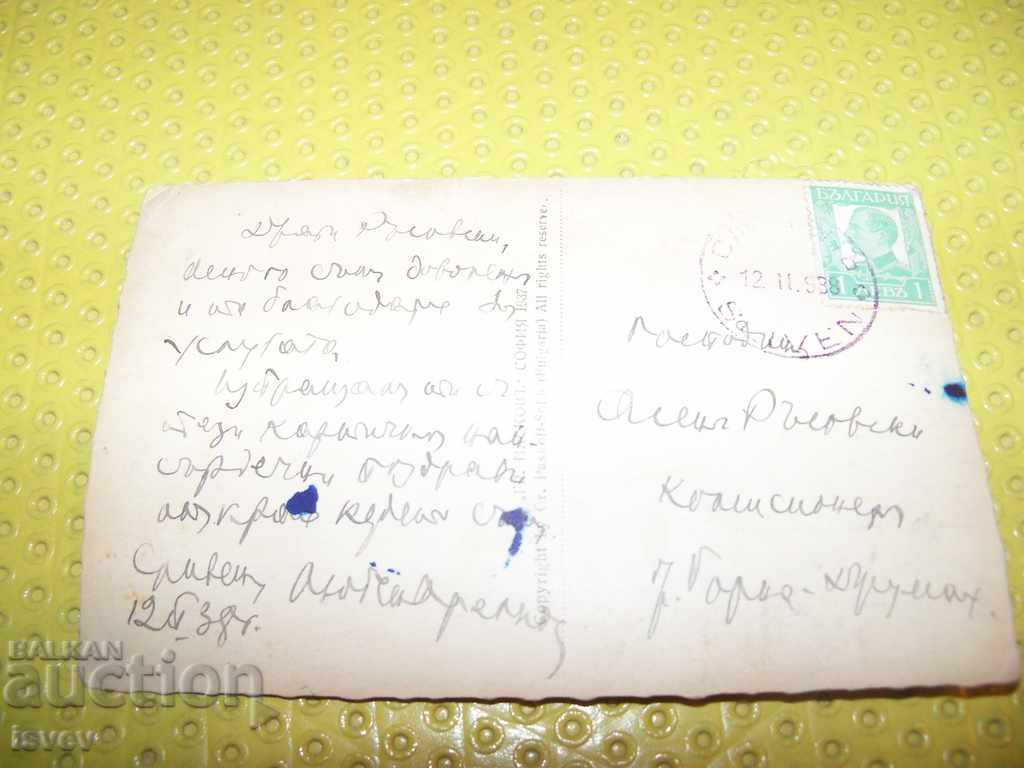 Драги Русовски,
много съм доволен
и ти благодаря за
услугата.
Изпращам ти с
тези картички най
сърдечни поздрави
Сливен
12 II 38 г.
Copyright by Gr. Paskoff-Sofia (Bulgaria) All rights reserve.
Гр. Пасковъ. София 1937
БЪЛГАРИЯ
1 ЛЕВЪ 1
12. II. 938
SLIVEN
Господин
Асен Русовски
Комисионер
г. Горна-Джумая.
BALKAN
auction
isvev